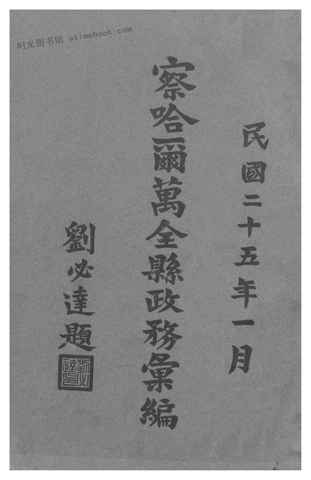 时光图书馆 stimebook.com
民國二十五年一月
察哈爾萬全縣政務彙編
劉必達題